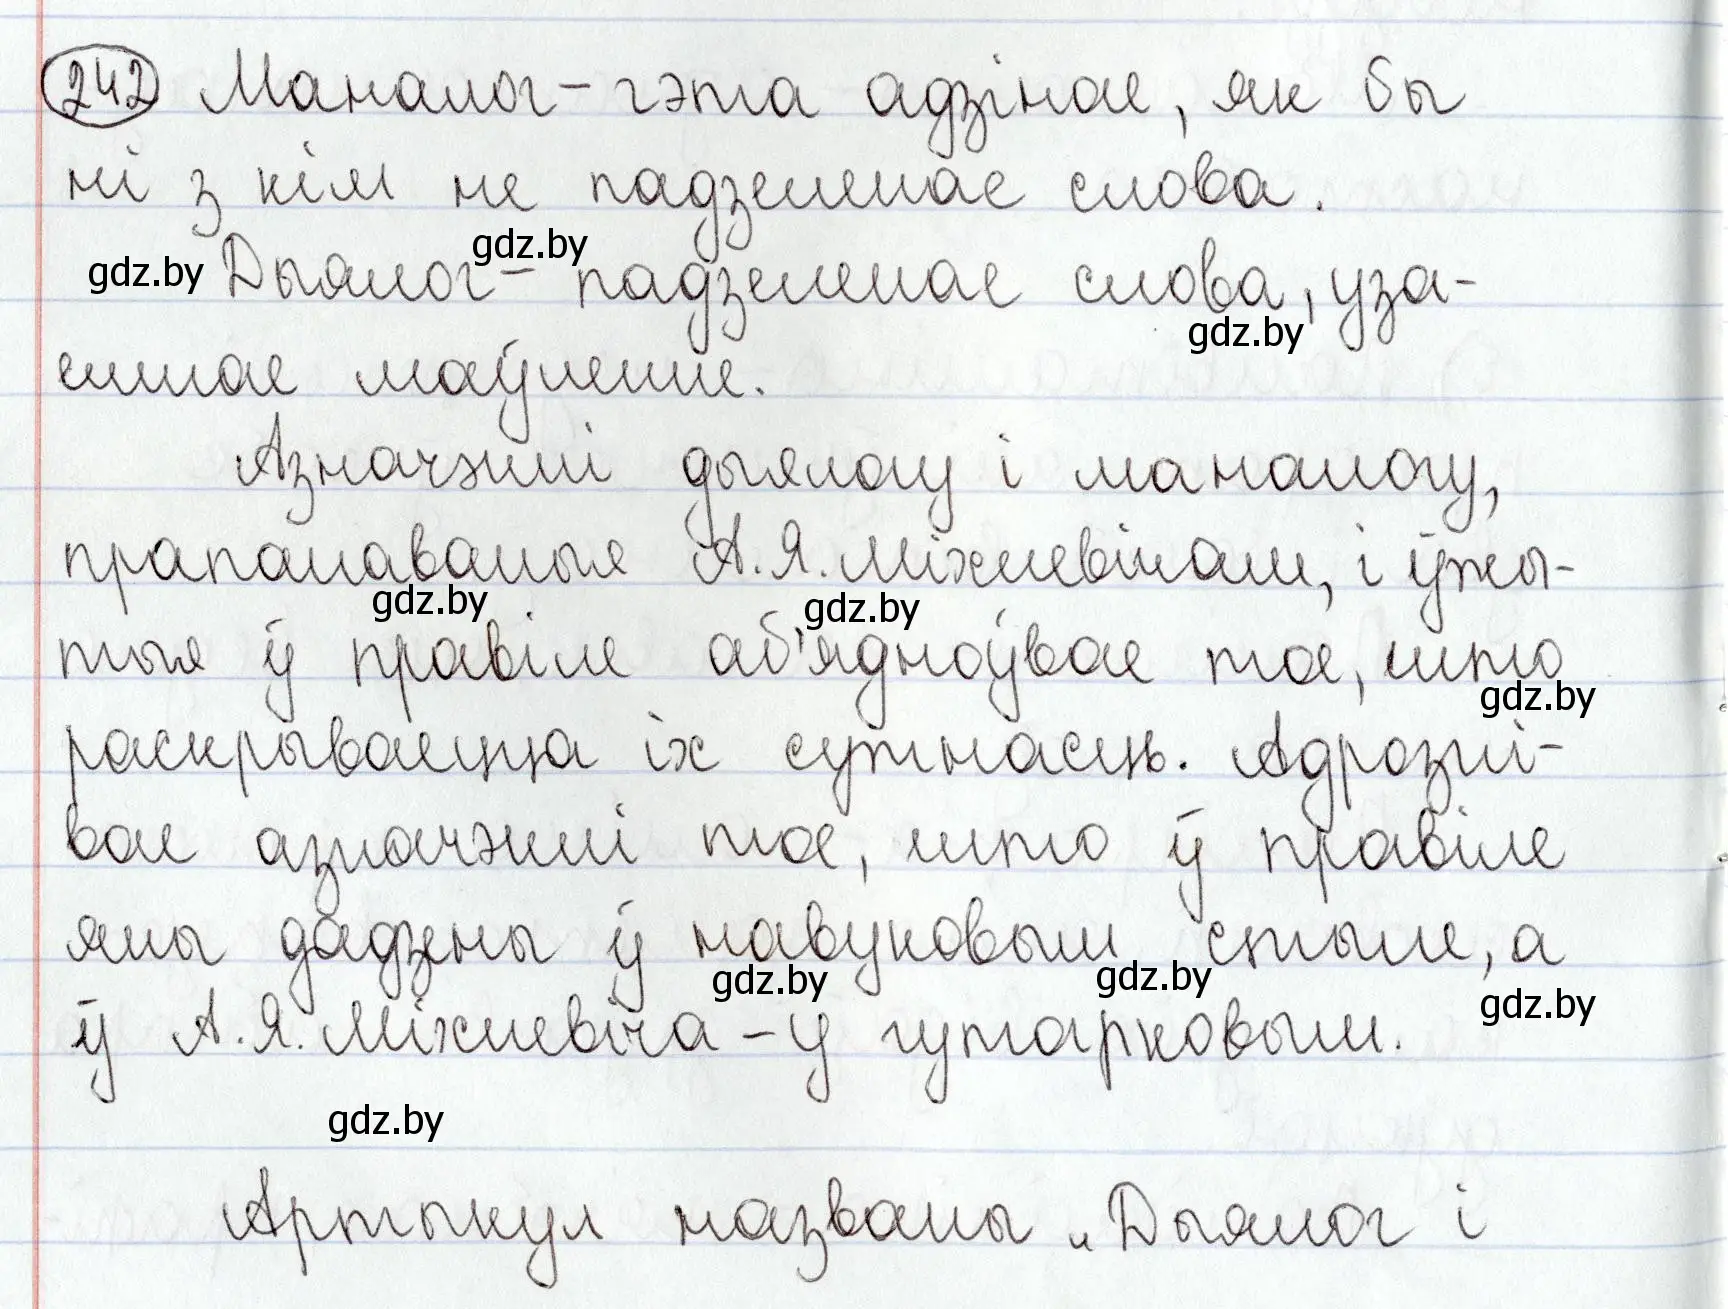 242 Маналог – гэта адзінае, як бы
ні з кім не падзеленае слова.
gdz.by
gdz.by
Дыялог – падзеленае слова, уза-
gdz.by
емнае маўленне.
Азначэнні дыялогу і маналогу,
прапанаваныя А.Я.Міхневічам, і ўжы-
gdz.by gdz.by
тыя ў правіле аб'ядноўвае тое, што
gdz.by
раскрываецца іх сутнасць. Адрозні-
вае азначэнні тое, што ў правіле
яны дадзены ў навуковым стыле, а
gdz.by gdz.by
gdz.by
ў А.Я.Міхневіча – у гутарковым.
gdz.by
Артыкул названы „Дыялог і